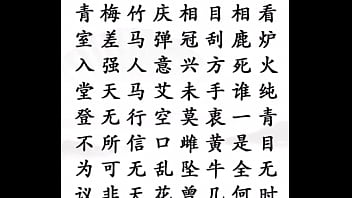 青梅竹庆相目相看
室差马弹冠刮鹿炉
入强人意兴方死火
堂天马艾未手谁纯
登无行空莫衷一青
不所信口雌黄是目
为可无乱坠牛全无
议非天花曾几何时